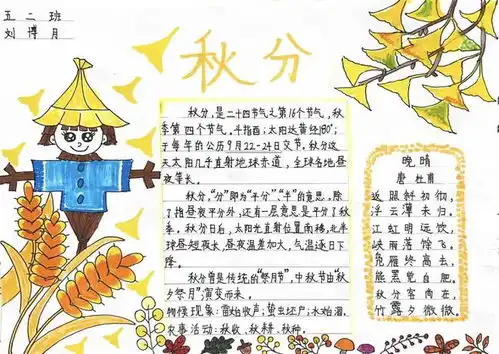 五二班
刘博月
秋分
秋分，是二十四节气之第16个节气，秋
季第四个节气，斗指酉；太阳达黄经180°；
于每年的公历9月22-24日交节。秋分这
天太阳几乎直射地球赤道，全球各地昼
夜等长。
秋分，“分”即为“平分”、“半”的意思，除
了指昼夜平分外，还有一层意思是平分了秋
季。秋分日后，太阳光直射位置南移，北半
球昼短夜长，昼夜温差加大，气温逐日下
降。
秋分曾是传统的“祭月节”，中秋节由“秋
夕祭月”演变而来。
物候现象：雷始收声；蛰虫坯户；水始涸。
农事活动：秋收、秋耕、秋种。
晚晴
唐 杜甫
返照斜初彻，
浮云薄未归。
江虹明远饮，
峡雨落馀飞。
凫雁终高去，
熊罴觉自肥。
秋分客尚在，
竹露夕微微。